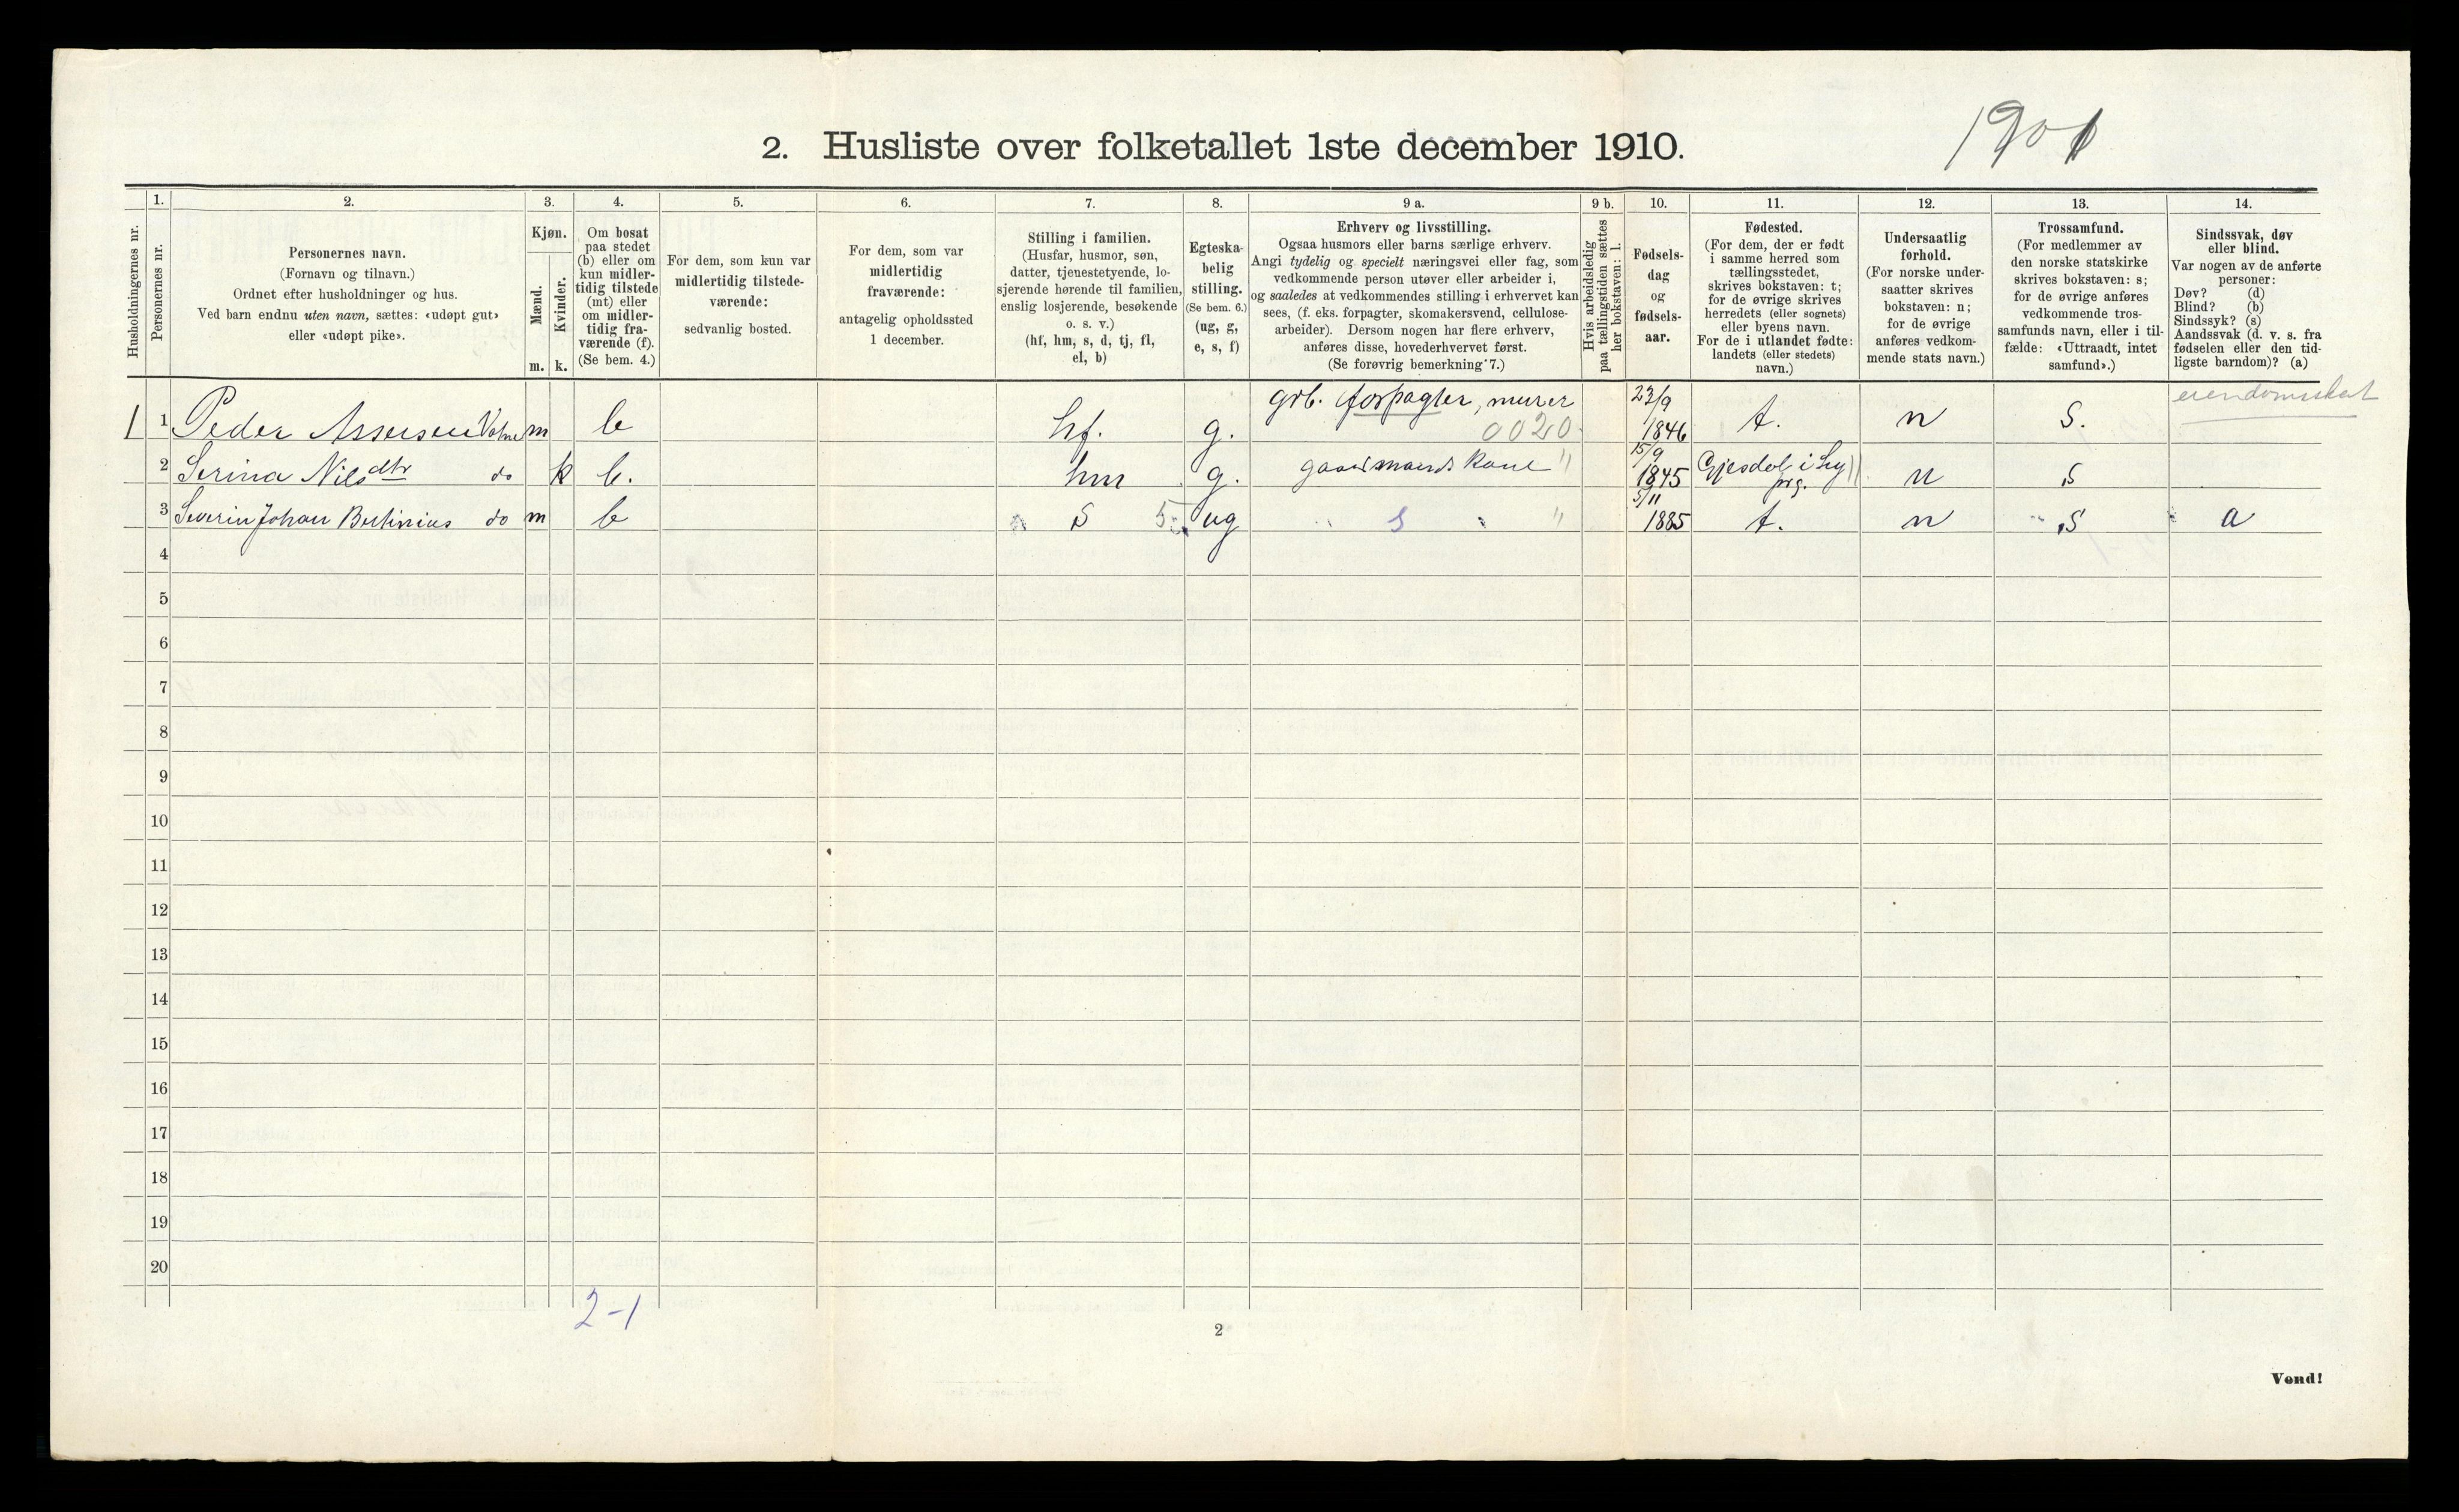 1901
2. Husliste over folketallet 1ste december 1910.
1. 2. 3. 4. 5. 6. 7. 8. 9 a. 9 b. 10. 11. 12. 13. 14.
Husholdningernes nr.
Personernes nr.
Personernes navn.
(Fornavn og tilnavn.)
Ordnet efter husholdninger og hus.
Ved barn endnu uten navn, sættes: «udøpt gut»
eller «udøpt pike».
Kjøn.
Mænd.
Kvinder.
m. k.
Om bosat
paa stedet
(b) eller om
kun midler-
tidig tilstede
(mt) eller
om midler-
tidig fra-
værende (f).
(Se bem. 4.)
For dem, som kun var
midlertidig tilstede-
værende:
sedvanlig bosted.
For dem, som var
midlertidig
fraværende:
antagelig opholdssted
1 december.
Stilling i familien.
(Husfar, husmor, søn,
datter, tjenestetyende, lo-
sjerende hørende til familien,
enslig losjerende, besøkende
o. s. v.)
(hf, hm, s, d, tj, fl,
el, b)
Egteska-
belig
stilling.
(Se bem. 6.)
(ug, g,
e, s, f)
Erhverv og livsstilling.
Ogsaa husmors eller barns særlige erhverv.
Angi tydelig og specielt næringsvei eller fag, som
vedkommende person utøver eller arbeider i,
og saaledes at vedkommendes stilling i erhvervet kan
sees, (f. eks. forpagter, skomakersvend, cellulose-
arbeider). Dersom nogen har flere erhverv,
anføres disse, hovederhvervet først.
(Se forøvrig bemerkning 7.)
Hvis arbeidsledig
paa tællingstiden sættes
her bokstaven: l.
Fødsels-
dag
og
fødsels-
aar.
Fødested.
(For dem, der er født
i samme herred som
tællingsstedet,
skrives bokstaven: t;
for de øvrige skrives
herredets (eller sognets)
eller byens navn.
For de i utlandet fødte:
landets (eller stedets)
navn.)
Undersaatlig
forhold.
(For norske under-
saatter skrives
bokstaven: n;
for de øvrige
anføres vedkom-
mende stats navn.)
Trossamfund.
(For medlemmer av
den norske statskirke
skrives bokstaven: s;
for de øvrige anføres
vedkommende tros-
samfunds navn, eller i til-
fælde: «Uttraadt, intet
samfund».)
Sindssvak, døv
eller blind.
Var nogen av de anførte
personer:
Døv? (d)
Blind? (b)
Sindssyk? (s)
Aandssvak (d. v. s. fra
fødselen eller den tid-
ligste barndom)? (a)
1 1 Peder Assersen m b hf. g. grb. forpagter, murer 0020 23/9 1846 t. n s. eiendomsskat
2 Serina Nilsdtr do k b. hm g. gaardmands kone " 15/9 1845 Gjesdal i n s
3 Severin Johan Bertinius do m b s 5 ug s " 5/11 1885 t. n s a
4
5
6
7
8
9
10
11
12
13
14
15
16
17
18
19
20
2-1
2
Vend!